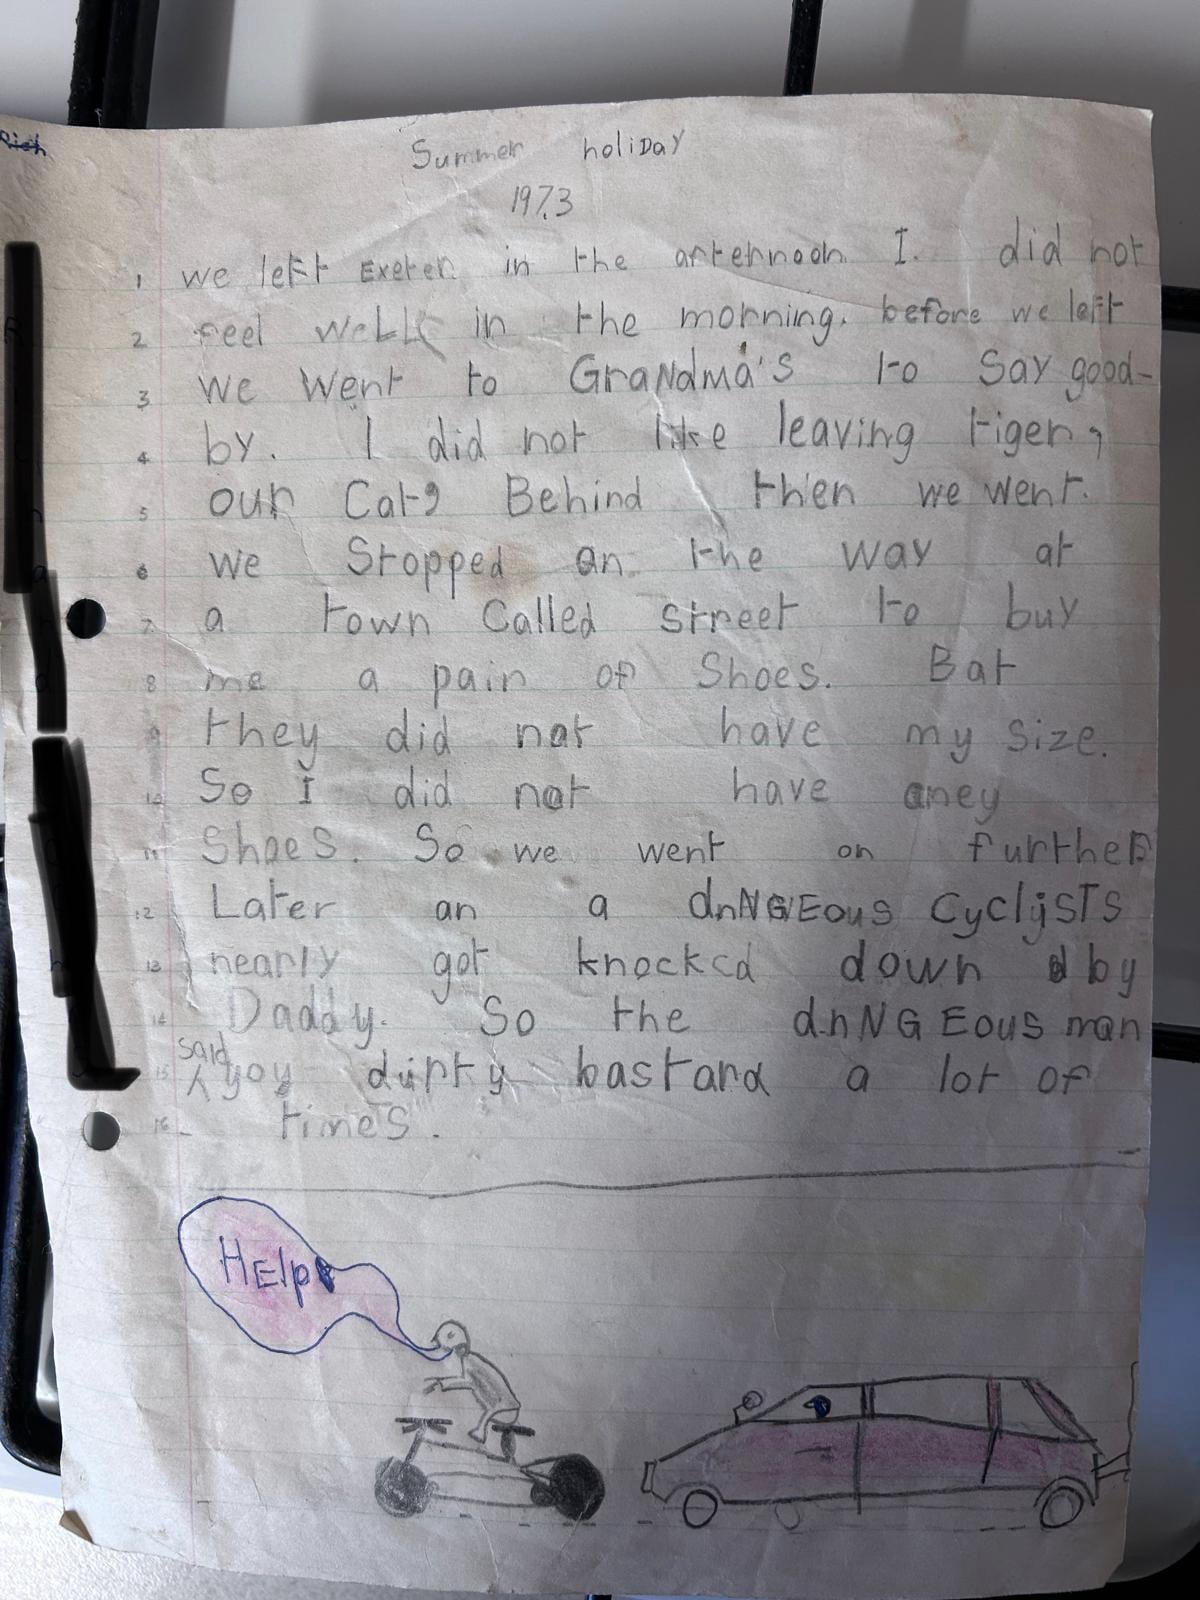 Rich
Summer holiDay
1973
1 we left Exeter in the arternoon I. did not
2 feel well in the morning. before we left
3 we went to GraNdma's to Say good-
4 by. I did not like leaving tiger,
5 our Cat, Behind then we went.
6 we Stopped on the way at
7 a town Called street to buy
8 me a pair of Shoes. But
9 they did not have my size.
10 So I did not have aney
11 Shoes. So we went on further
12 Later on a dnNGEous CyclisTs
13 nearly got knocked down by
14 Daddy. So the dnNGEous man
15 said you durty bastard a lot of
16 times.
HElp